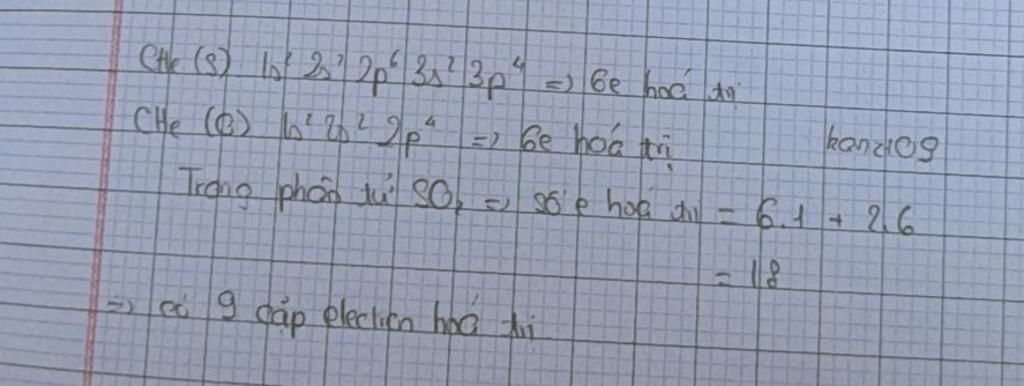 CHe (S) 1s² 2s² 2p⁶ 3s² 3p⁴ => 6e hoá trị
CHe (O) 1s² 2s² 2p⁴ => 6e hoá trị
kanz109
Trong phân tử SO₂ => số e hoá trị = 6.1 + 2.6
= 18
=> có 9 cặp electron hoá trị